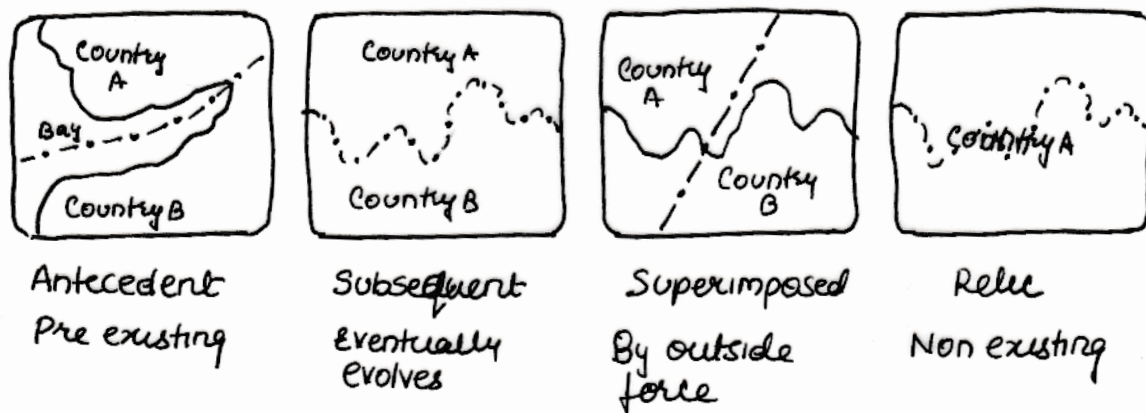 Country
A
Bay
Country B
Antecedent
Pre existing
Country A
Country B
Subsequent
Eventually
evolves
Country
A
Country
B
Superimposed
By outside
force
Country A
Relic
Non existing